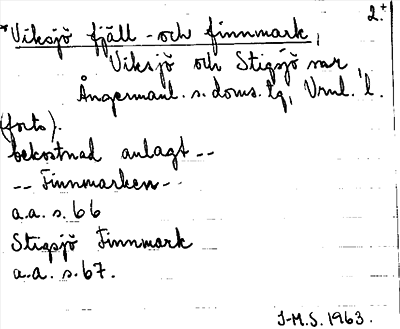 2.+
*Viksjö fjäll- och finnmark,
Viksjö och Stigsjö snar
Ångermanl. s. doms. lg, Vrnl. l.
(forts).
bekostnad anlagt --
-- Finnmarken --
a.a. s. 66
Stigsjö Finnmark
a.a. s. 67.
J-M.S. 1963.